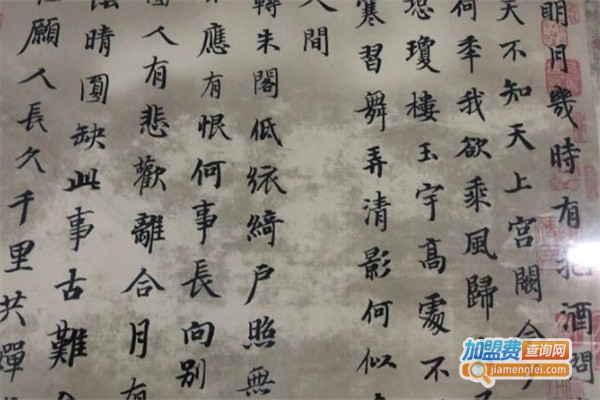 明月幾時有把酒問
天不知天上宮闕今
何秊我欲乘風歸
恐瓊樓玉宇高處不
寒習舞弄清影何似
人間
轉朱閣低依綺户照無
應有恨何事長向別
人有悲歡離合月有
陰晴圓缺此事古難
願人長久千里共嬋
加盟费查询网
jiamengfei.com